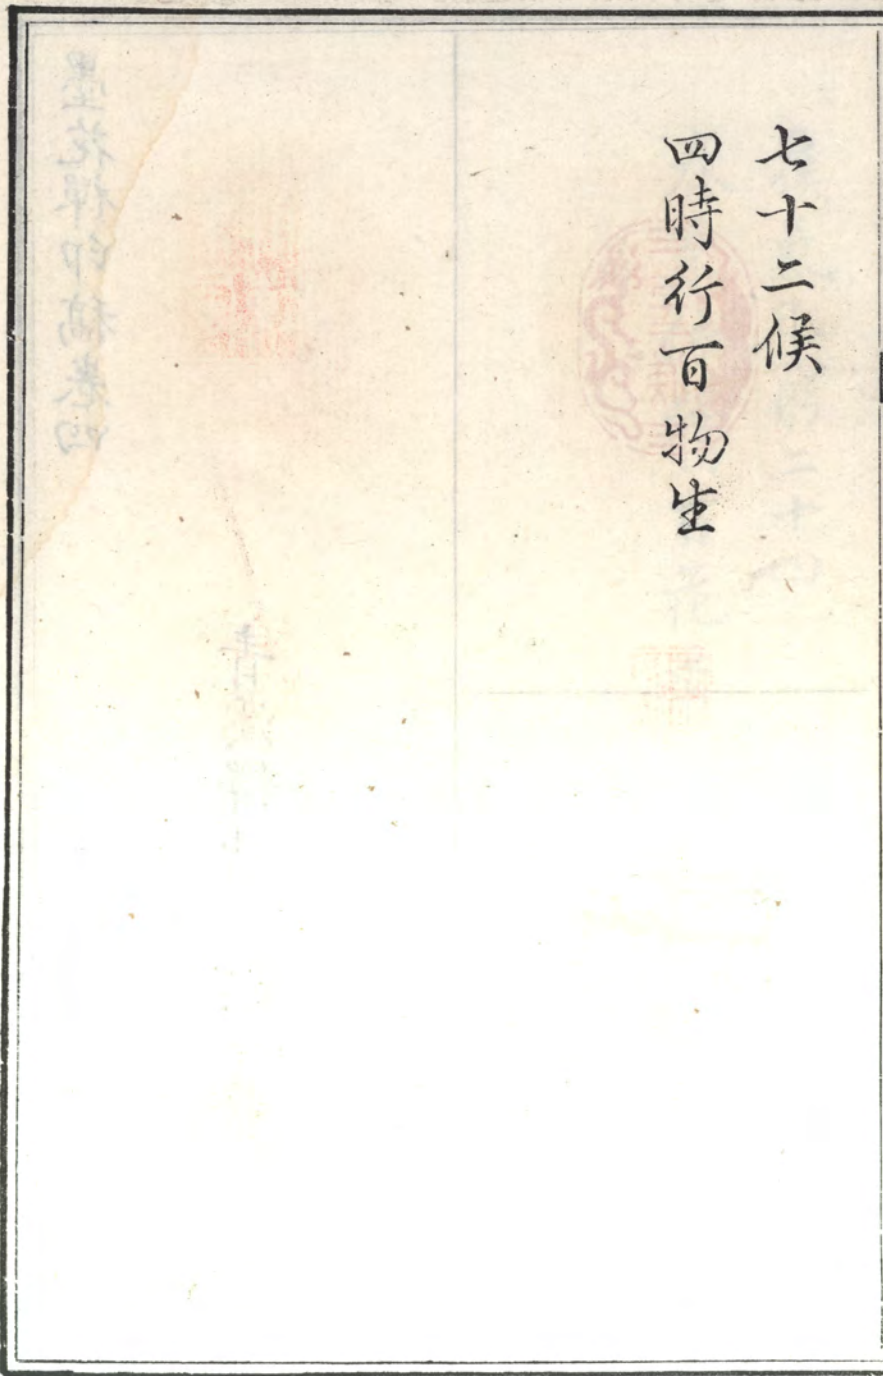 七十二候
四時行百物生